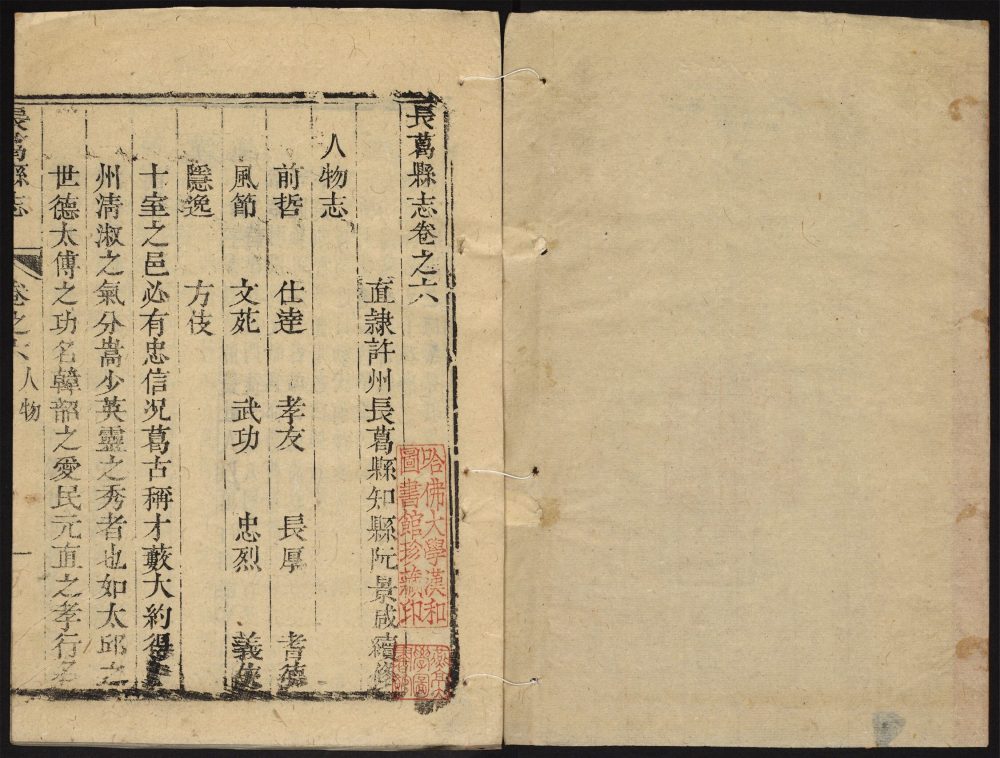 長葛縣志卷之六
直隷許州長葛縣知縣阮景咸續修
人物志
前哲 仕達 孝友 長厚 耆德
風節 文苑 武功 忠烈 義俠
隱逸 方伎
十室之邑必有忠信况葛古稱才藪大約得
州清淑之氣分嵩少英靈之秀者也如太邱之
世德太傅之功名韓韶之愛民元直之孝行
長葛縣志 卷之六 人物 一
哈佛大學漢和
圖書館珍藏印